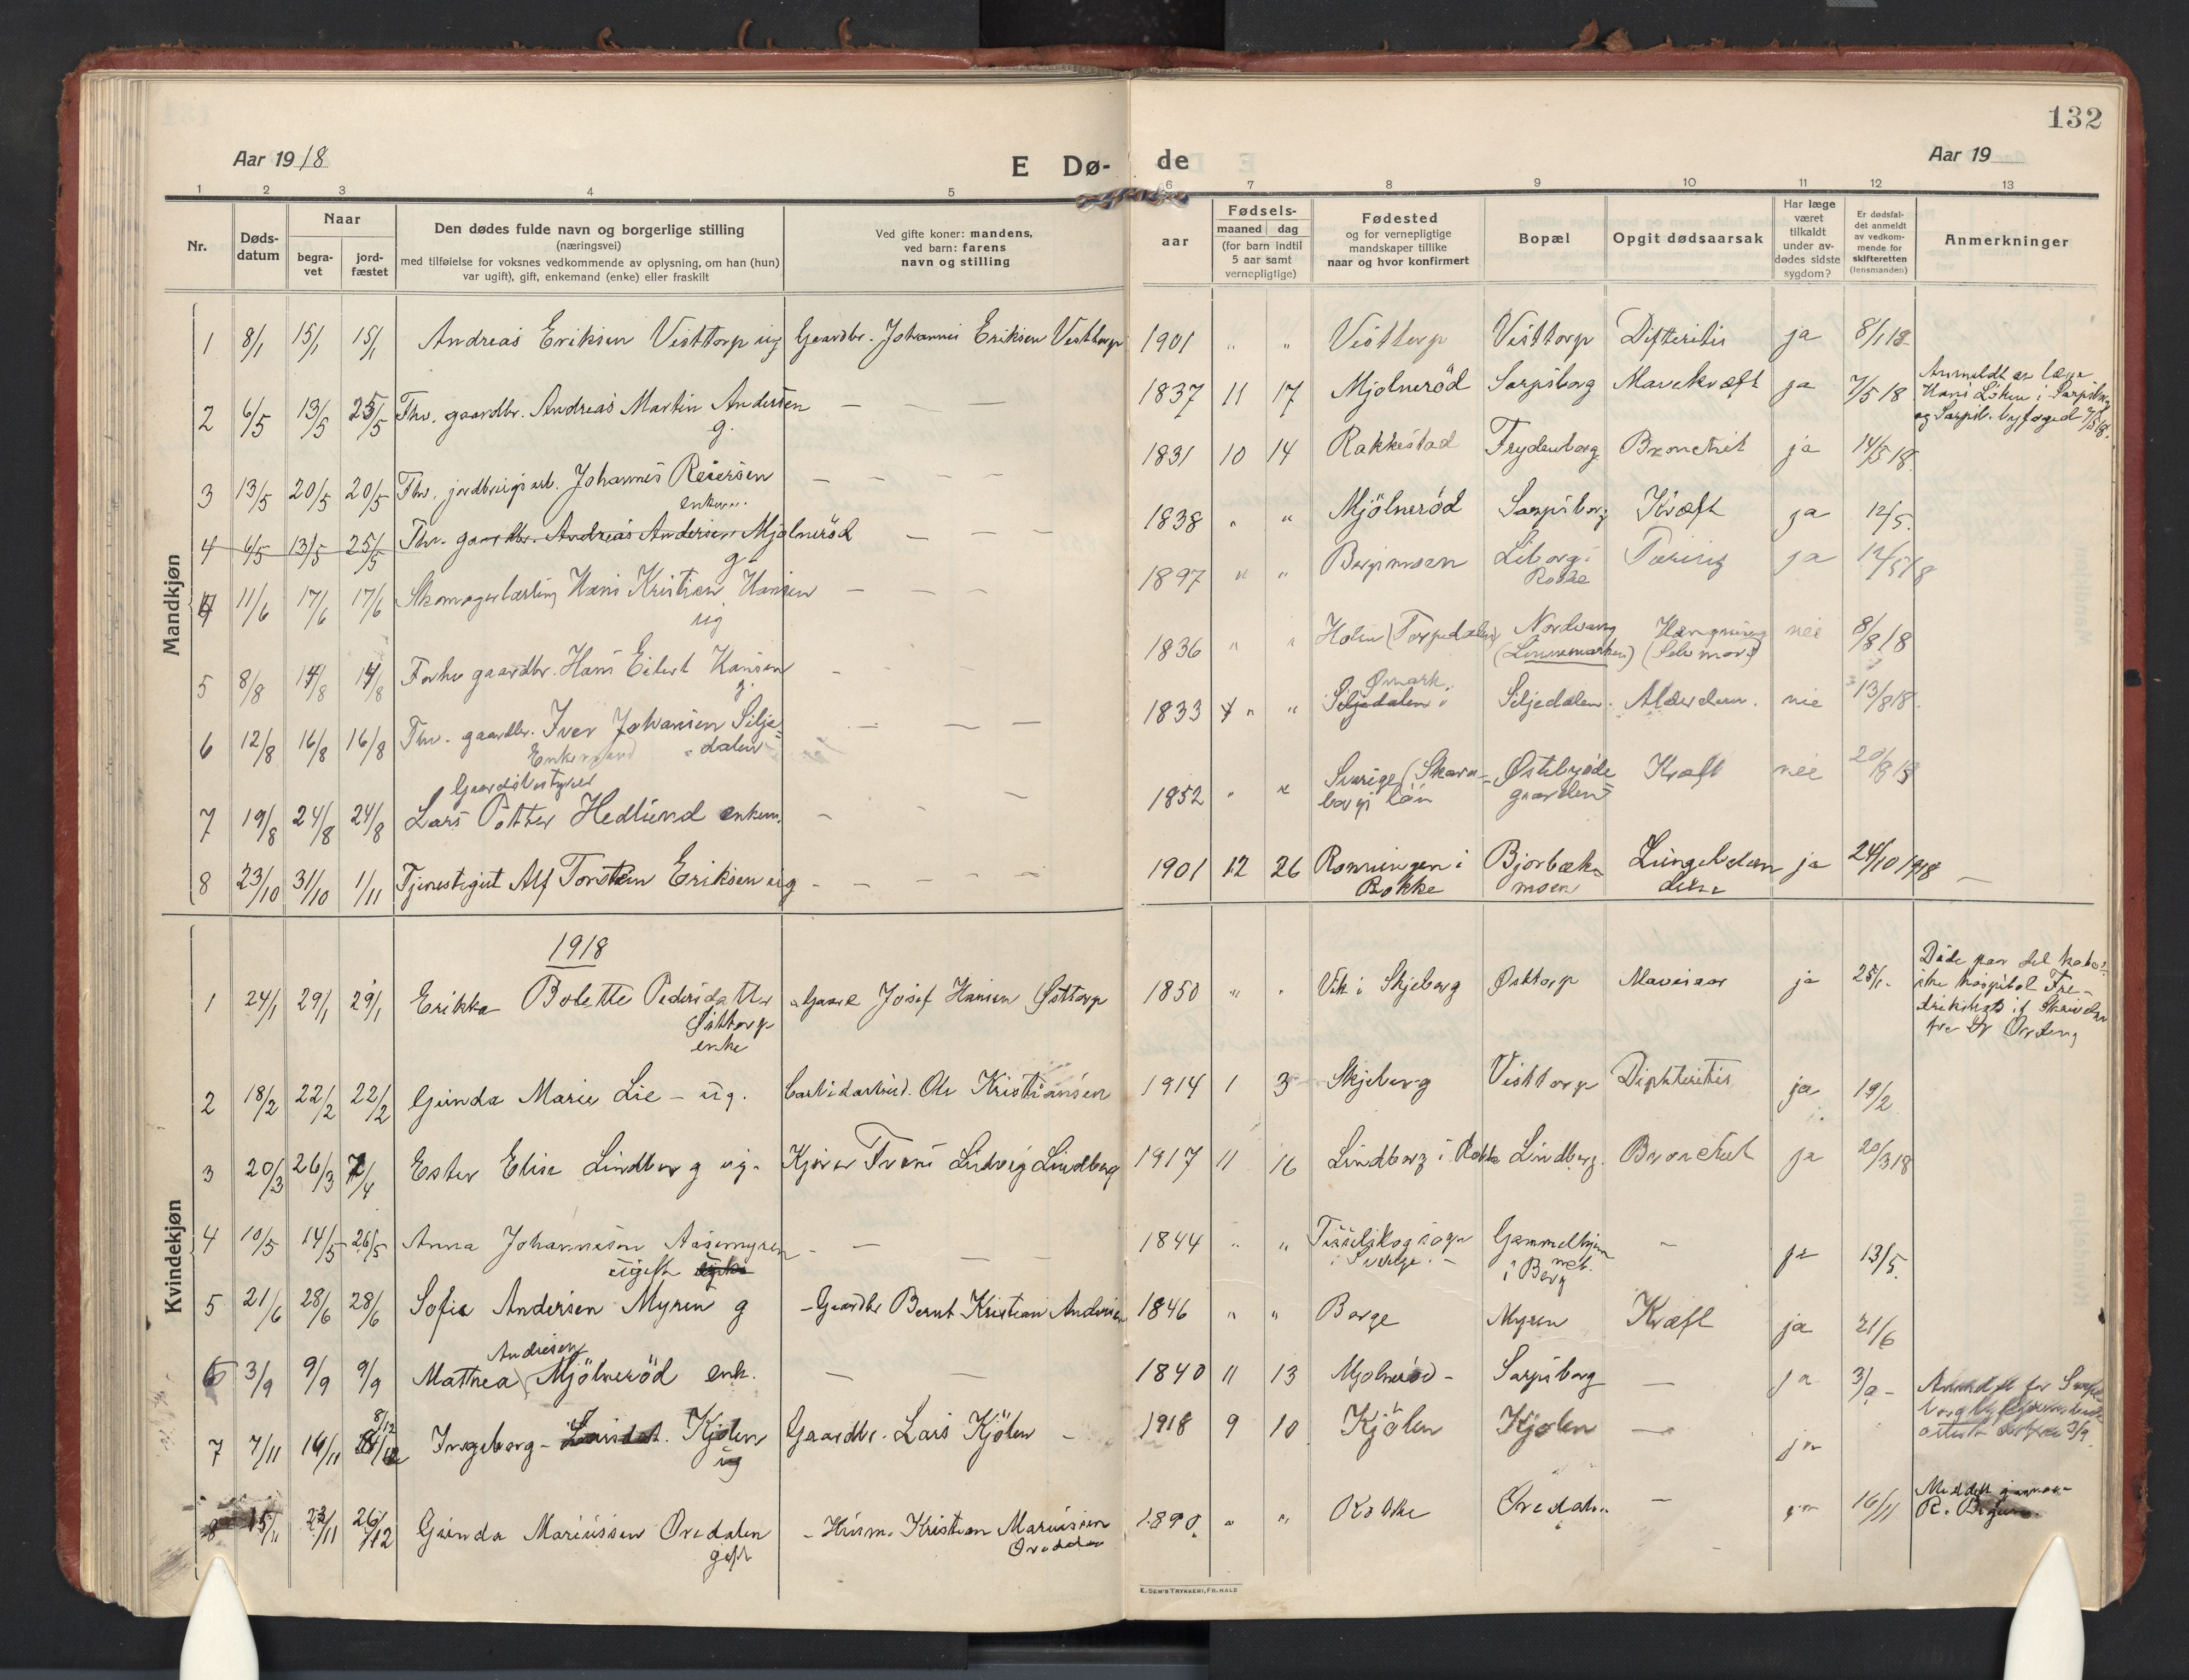 132
Aar 1918
E Dø-
de
Aar 19
1 2 3 4 5 6 7 8 9 10 11 12 13
Nr.
Døds-
datum
Naar
begra-
vet
jord-
fæstet
Den dødes fulde navn og borgerlige stilling
(næringsvei)
med tilføielse for voksnes vedkommende av oplysning, om han (hun)
var ugift), gift, enkemand (enke) eller fraskilt
Ved gifte koner: mandens,
ved barn: farens
navn og stilling
Fødsels-
aar
maaned dag
(for barn indtil
5 aar samt
vernepligtige)
Fødested
og for vernepligtige
mandskaper tillike
naar og hvor konfirmert
Bopæl
Opgit dødsaarsak
Har læge
været
tilkaldt
under av-
dødes sidste
sygdom?
Er dødsfal-
det anmeldt
av vedkom-
mende for
skifteretten
(lensmanden)
Anmerkninger
Mandkjøn
1 8/1 15/1 15/1 Andreas Eriksen Visttorp ug Gaardbr. Johannes Eriksen Visttorp 1901 " " Visttorp Visttorp Difteritis ja 8/1 18
2 6/5 13/5 25/5 Fhv. gaardbr. Andreas Martin Andersen — — — 1837 11 17 Mjølnerød Sarpsborg Mavekræft ja 7/5 18 Anmeldt av læge
g. Hans Löken i Sarpsborg
og Sarpsb. byfoged 7/5 18.
3 13/5 20/5 20/5 Fhv. jordbrugsarb. Johannes Reiersen — — — — 1831 10 14 Rakkestad Frydenborg Bronchit ja 14/5 18
enkem.
4 6/5 13/5 25/5 Fhv. gaardbr. Andreas Andersen Mjølnerød — — — 1838 " " Mjölneröd Sarpsborg Kræft ja 12/5.
g.
4 11/6 17/6 17/6 Skomagerlærling Hans Kristian Hansen — — — 1897 " " Bergsmoen Liborg i Tæring ja 12/6 18
ug Rokke
5 8/8 14/8 14/8 Forhv gaardbr. Hans Eilert Hansen — 1836 " " Holm (Torpedalen) Nordvang Hængning nei 8/8 18
g. (Linnemarken) (Selvmord)
6 12/8 16/8 16/8 Fhv. gaardbr. Iver Johansen Silje- — — — 1833 " " Siljedalen Siljedalen. Alderdom. nei 13/8 18.
Enkemand dalen Ømark.
Gaardsbestyrer
7 19/8 24/8 24/8 Lars Petter Hedlund enkem. — — 1852 " " Sverige (Skara- Østebyøde Kræft nei 20/8 18
borgs län gaarden
8 23/10 31/10 1/11 Tjenestegut Alf Torstein Eriksen ug — — — — 1901 12 26 Rønningen i Bjorbæk- Lungebetæn ja 24/10 1918 —
Rokke moen delse
Kvindekjøn
1918
1 24/1 29/1 29/1 Erikka Bolette Pedersdatter Gaare Josef Hansen Østtorp 1850 " " Vik i Skjeberg Østtorp Mavesaar ja 25/1. Døde paa det kato-
Østtorp ske hospital Fre-
enke drikshald
2 18/2 22/2 22/2 Gunda Marie Lie - ug. Carbidarbeid. Ole Kristiansen 1914 1 3 Skjeberg Visttorp Diphteritis ja 19/2
3 20/3 26/3 7/4 Ester Elise Lindberg ug. Kjører Frans Ludvig Lindberg 1917 11 16 Lindberg i Rokke Lindberg. Bronchit ja 20/3 18
4 10/5 14/5 26/5 Anna Johannesen Aasemyren — — — 1844 " " Tisselskog sogn Gammelhjem — ja 13/5.
ugift i Sverige. met. i Berg
5 21/6 28/6 28/6 Sofie Andersen Myren g - Gaardbr Bernt Kristian Andersen 1846 " " Borge Myren Kræft ja 21/6
Andersen
6 3/9 9/9 9/9 Mathea Mjölneröd enk. — — 1840 11 13 Mjølnerød - Sarpsborg — ja 3/9 -
7 7/11 16/11 8/12 Ingeborg - Larsdat. Kjölen Gaardbr. Lars Kjölen — 1918 9 10 Kjölen Kjølen — ja
ug
8 15/11 23/11 26/12 Gunda Mariussen Oredalen - Husm. Kristian Mariussen 1890 " " Rokke Oredalen — ja 16/11 Meddelt gjennem
gift Oredalen
E. SEM'S TRYKKERI, FR.HALD